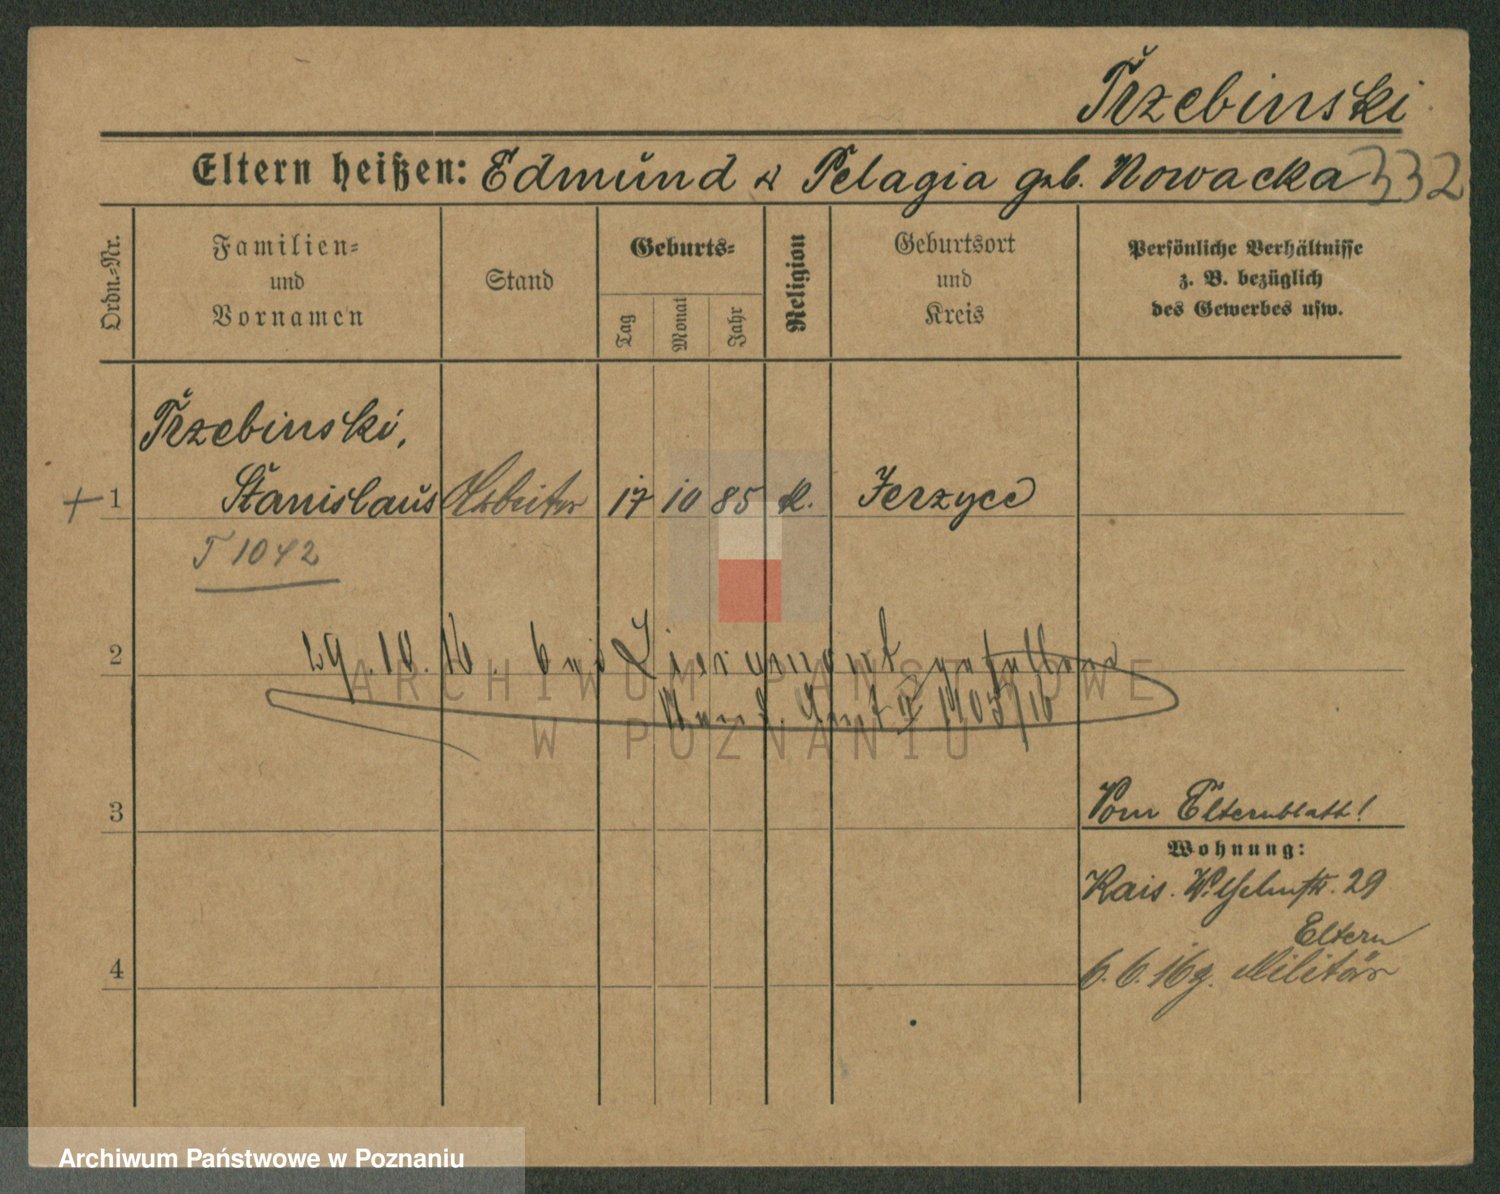 Trzebinski
Eltern heißen: Edmund u Pelagia geb. Nowacka 332
Ordn.-Nr.
Familien-
und
Vornamen
Stand
Geburts-
Tag
Monat
Jahr
Religion
Geburtsort
und
Kreis
Persönliche Verhältnisse
z. B. bezüglich
des Gewerbes usw.
Trzebinski,
+ 1 Stanislaus Arbeiter 17 10 85 k. Jerzyce
T 1042
2
29.10.16. bei gefallen
II 1905/16
3
Vom Elternblatt!
Wohnung:
Kais. Wilhelmstr. 29
Eltern
4
6.6.16 z. Militär
ARCHIWUM PAŃSTWOWE
W POZNANIU
Archiwum Państwowe w Poznaniu